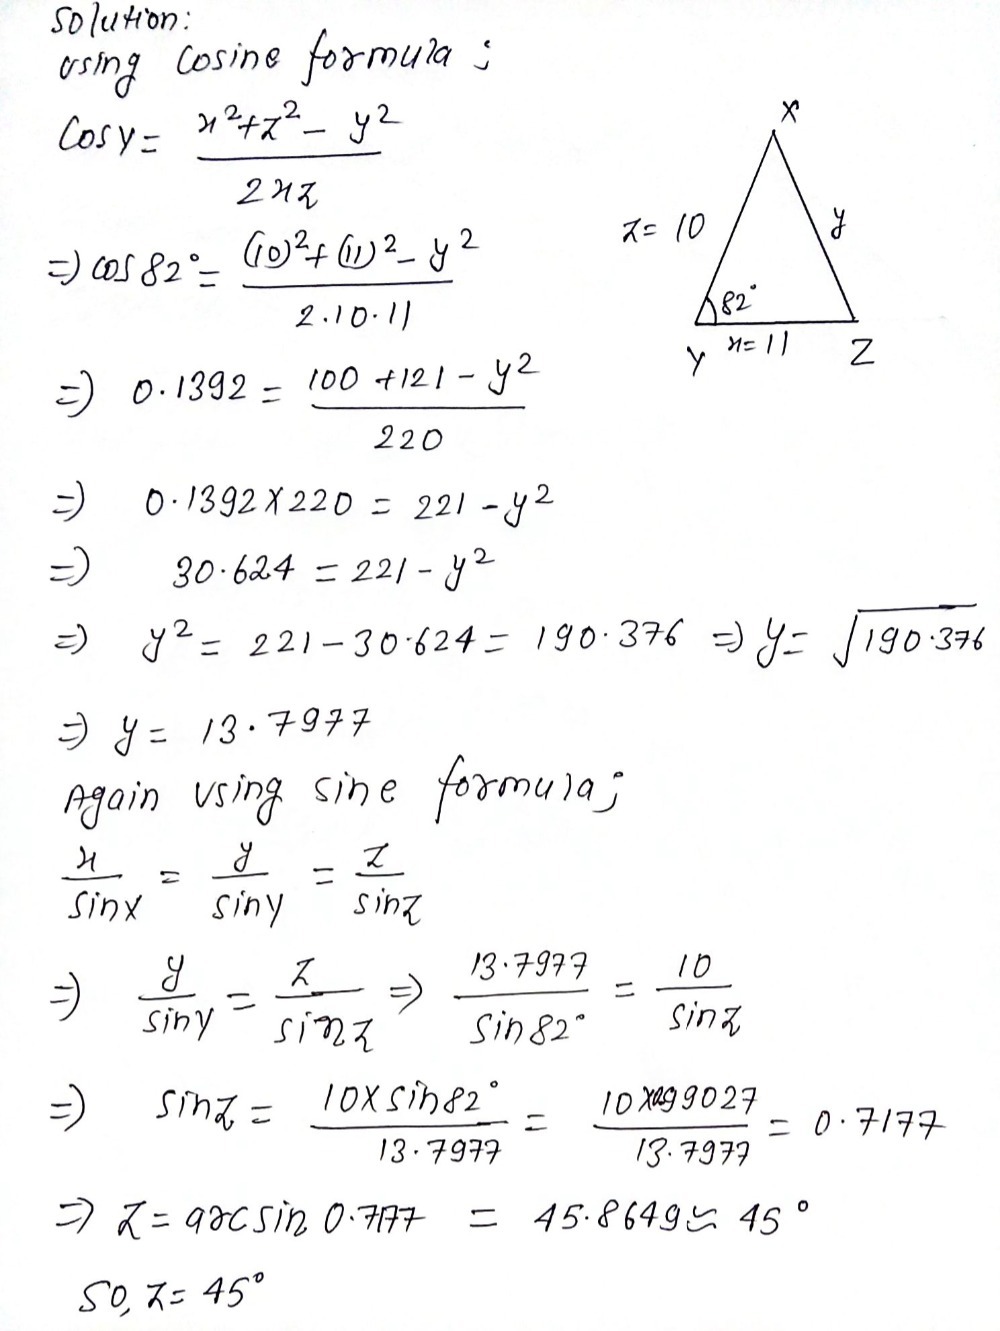 Solution:
Using Cosine formula ;
Cos Y = (x² + z² - y²) / 2xz
=) cos 82° = ((10)² + (11)² - y²) / 2·10·11
=) 0.1392 = (100 + 121 - y²) / 220
=) 0.1392 X 220 = 221 - y²
=) 30.624 = 221 - y²
=) y² = 221 - 30.624 = 190.376 =) y = √190.376
=) y = 13.7977
Again using sine formula;
x / sin X = y / sin Y = z / sin Z
=) y / sin Y = z / sin Z =) 13.7977 / sin 82° = 10 / sin Z
=) sin Z = 10 X sin 82° / 13.7977 = 10 X 0.99027 / 13.7977 = 0.7177
=) Z = arc sin 0.7177 = 45.8649 ≈ 45°
So, Z = 45°
X
z = 10 y
82°
Y x = 11 Z